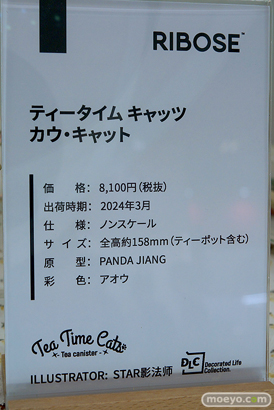 RIBOSE™
ティータイム キャッツ
カウ・キャット
価　　格： 8,100円（税抜）
出荷時期： 2024年3月
仕　　様： ノンスケール
サ イ ズ： 全高約158mm（ティーポット含む）
原　　型： PANDA JIANG
彩　　色： アオウ
Tea Time Cats
- Tea canister -
DLC Decorated Life Collection.
ILLUSTRATOR: STAR影法师
moeyo.com